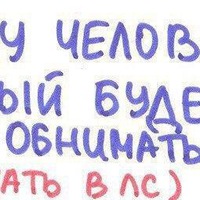 У ЧЕЛОВ
ЫЙ БУДЕ
ОБНИМАТЬ
АТЬ В ЛС)